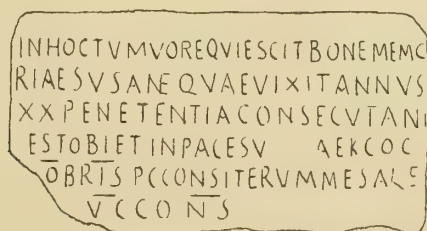 INHOCTVMVOREQVIESCITBONEMEMC
RIAESVSANEQVAEVIXITANNVS
XXPENETENTIACONSECVTANI
ESTOBIETINPACESV AEKCOC
OBRTS PCCONSITERVMMESALC
VCCONS